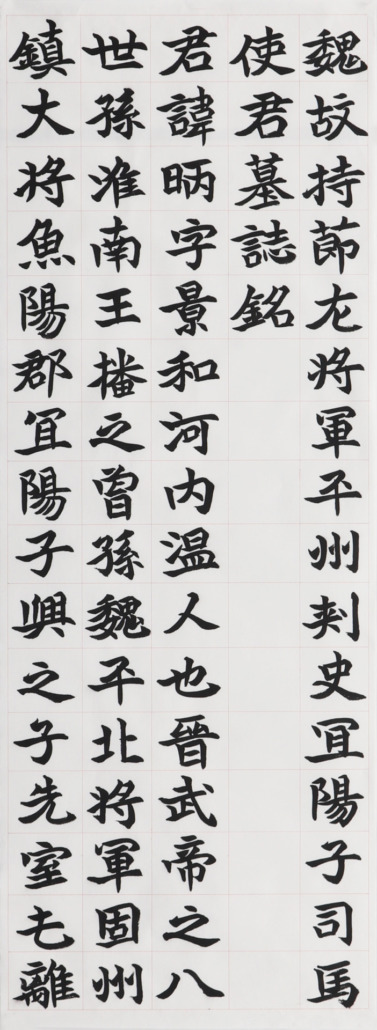 魏故持莭左将軍平州刾史冝陽子司馬
使君墓誌銘
君諱昞字景和河内温人也晉武帝之八
世孫淮南王播之曾孫魏平北将軍固州
鎮大将魚陽郡冝陽子興之子先室屯離